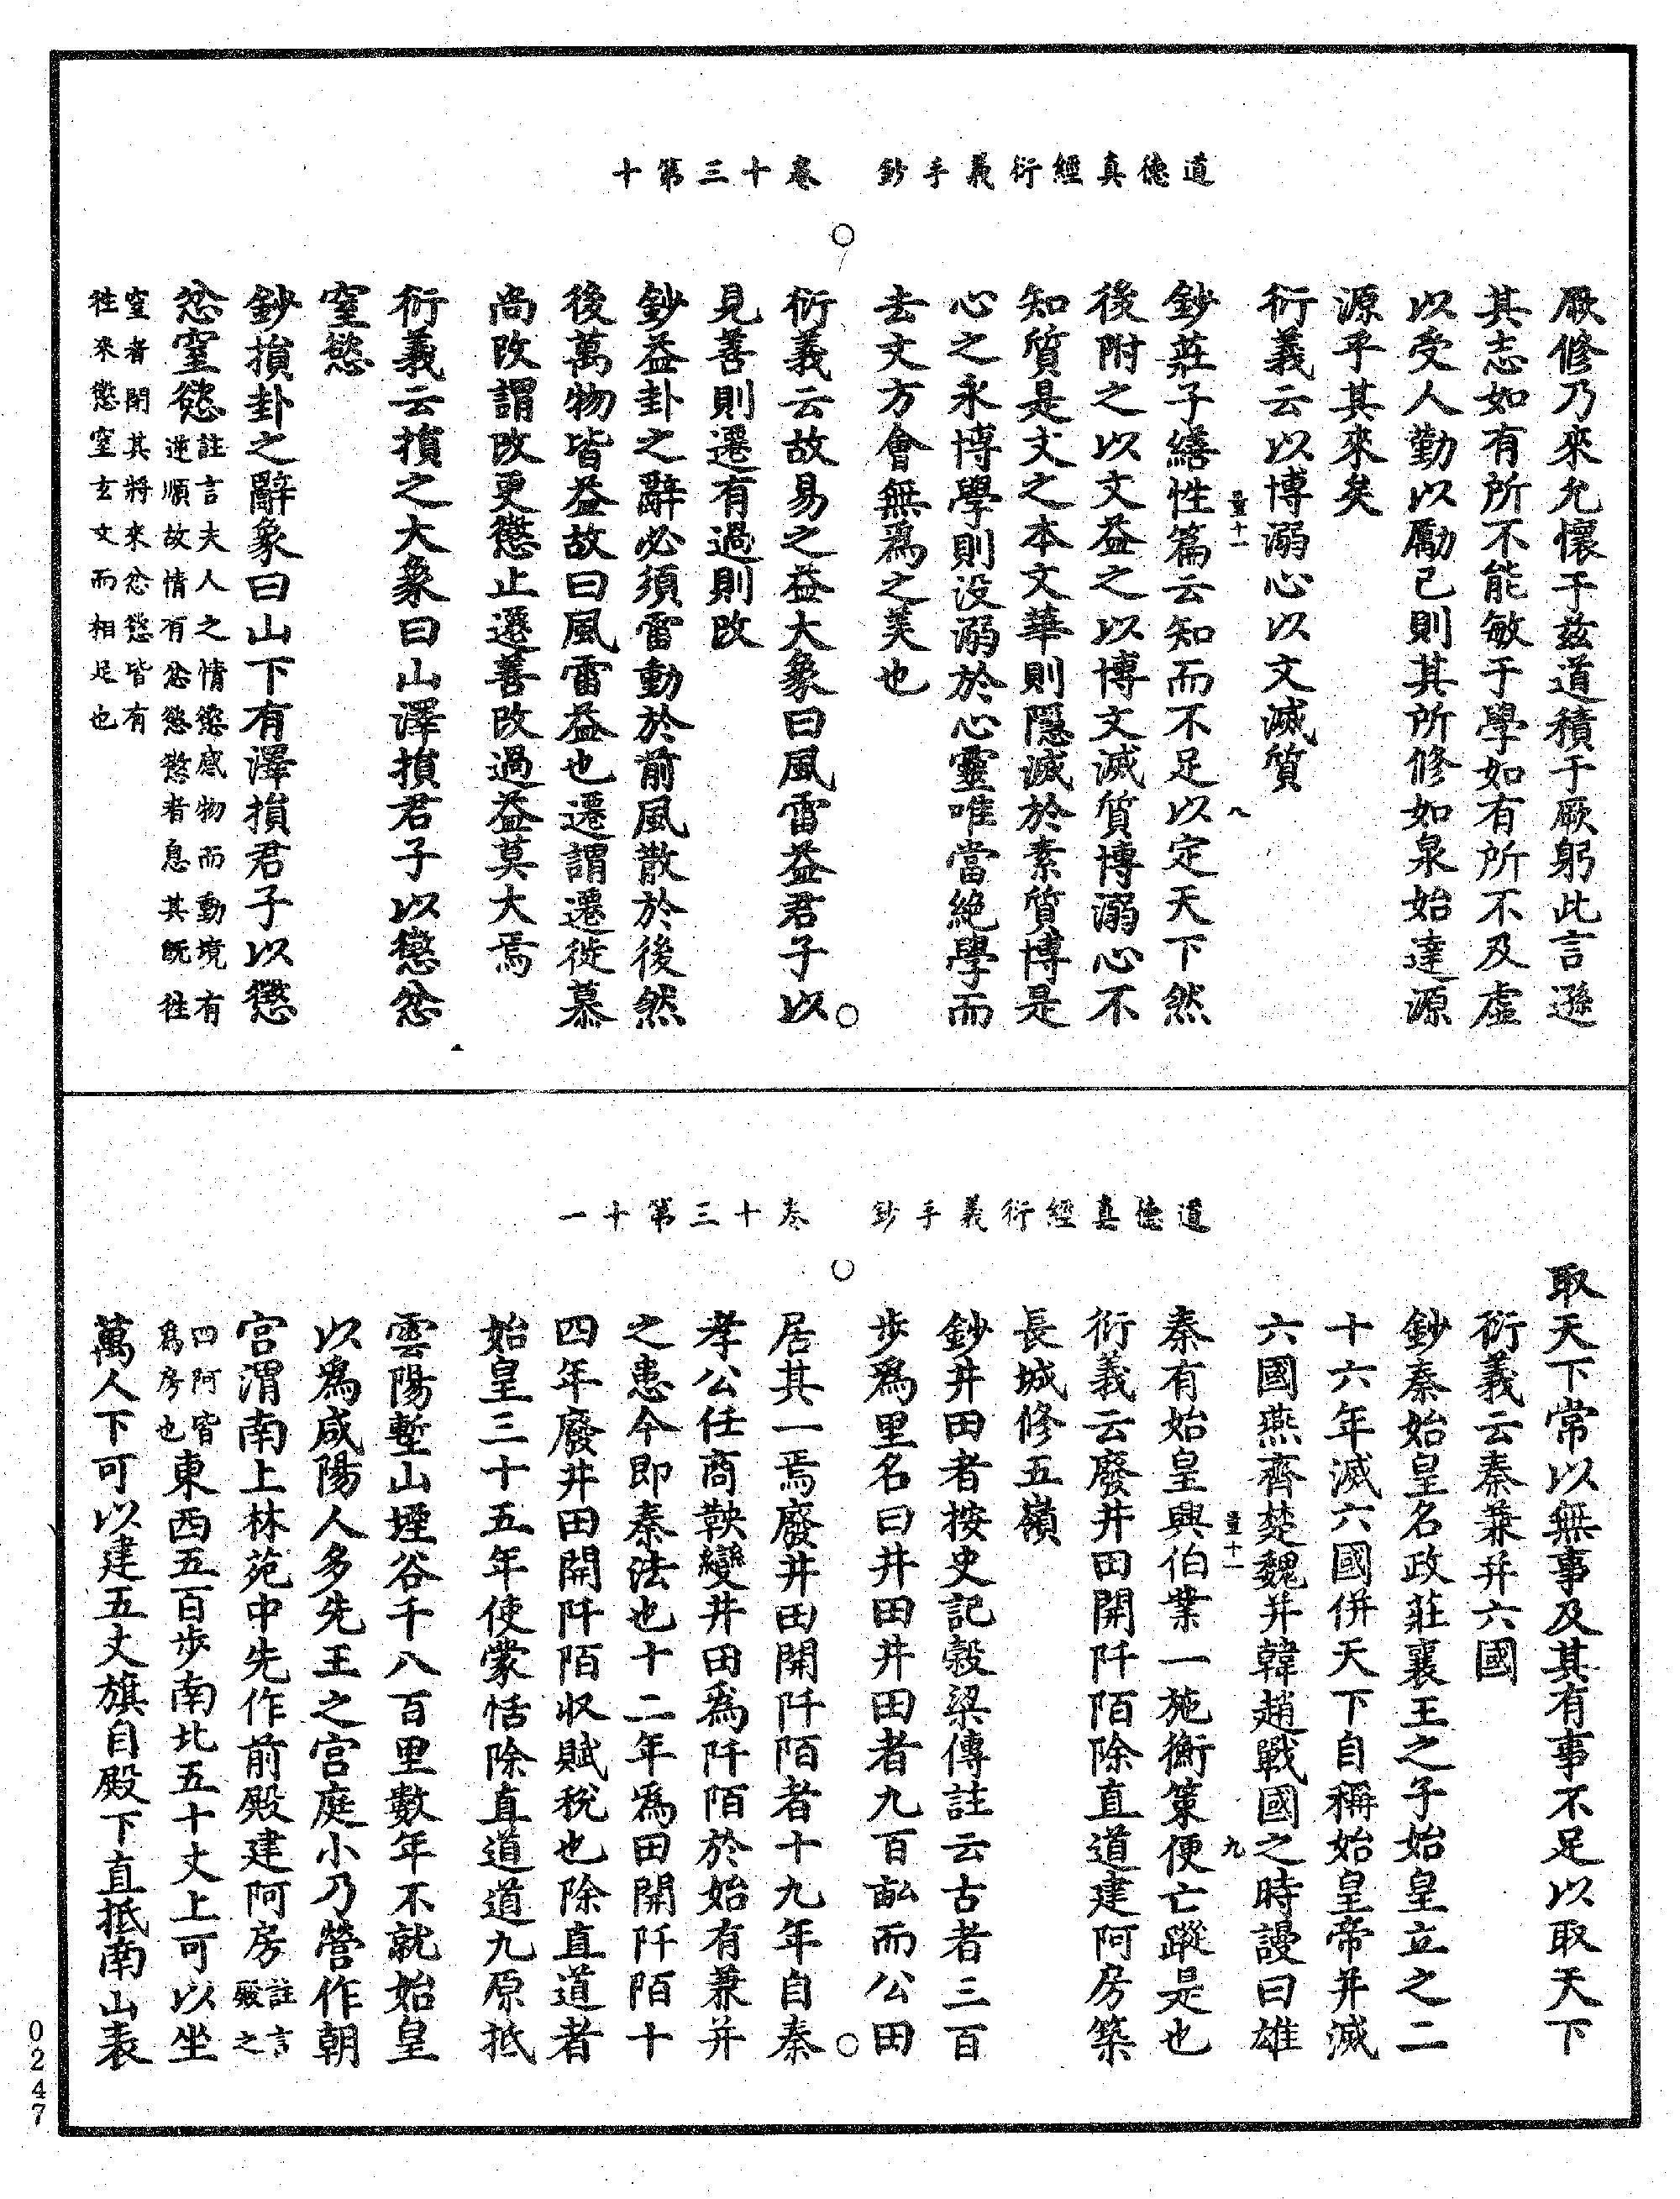 道德真經衍義手鈔　卷十三第十
厥修乃來允懷于茲道積于厥躬此言遜
其志如有所不能敏于學如有所不及虛
以受人勤以勵己則其所修如泉始達源
源乎其來矣
衍義云以博溺心以文滅質
量十一
八
鈔莊子繕性篇云知而不足以定天下然
後附之以文益之以博文滅質博溺心不
知質是文之本文華則隱滅於素質博是
心之永博學則没溺於心靈唯當絶學而
去文方會無爲之美也
衍義云故易之益大象曰風雷益君子以
見善則遷有過則改
鈔益卦之辭必須雷動於前風散於後然
後萬物皆益故曰風雷益也遷謂遷徙慕
尚改謂改更懲止遷善改過益莫大焉
衍義云損之大象曰山澤損君子以懲忿
窒慾
鈔損卦之辭象曰山下有澤損君子以懲
忿窒慾註言夫人之情慾感物而動境有
逆順故情有忿慾懲者息其既往
窒者閉其將來忿慾皆有
往來懲窒玄文而相足也
道德真經衍義手鈔　卷十三第十一
取天下常以無事及其有事不足以取天下
衍義云秦兼并六國
鈔秦始皇名政莊襄王之子始皇立之二
十六年滅六國併天下自稱始皇帝并滅
六國燕齊楚魏并韓趙戰國之時謾曰雄
量十一
九
秦有始皇興伯業一施衡策便亡蹤是也
衍義云廢井田開阡陌除直道建阿房築
長城修五嶺
鈔井田者按史記穀梁傳註云古者三百
步爲里名曰井田井田者九百畝而公田
居其一焉廢井田開阡陌者十九年自秦
孝公任商鞅變井田爲阡陌於始有兼并
之患今即秦法也十二年爲田開阡陌十
四年廢井田開阡陌収賦稅也除直道者
始皇三十五年使蒙恬除直道道九原抵
雲陽塹山堙谷千八百里數年不就始皇
以爲咸陽人多先王之宮庭小乃營作朝
宮渭南上林苑中先作前殿建阿房註言
殿之
四阿皆
爲房也東西五百步南北五十丈上可以坐
萬人下可以建五丈旗自殿下直抵南山表
0247